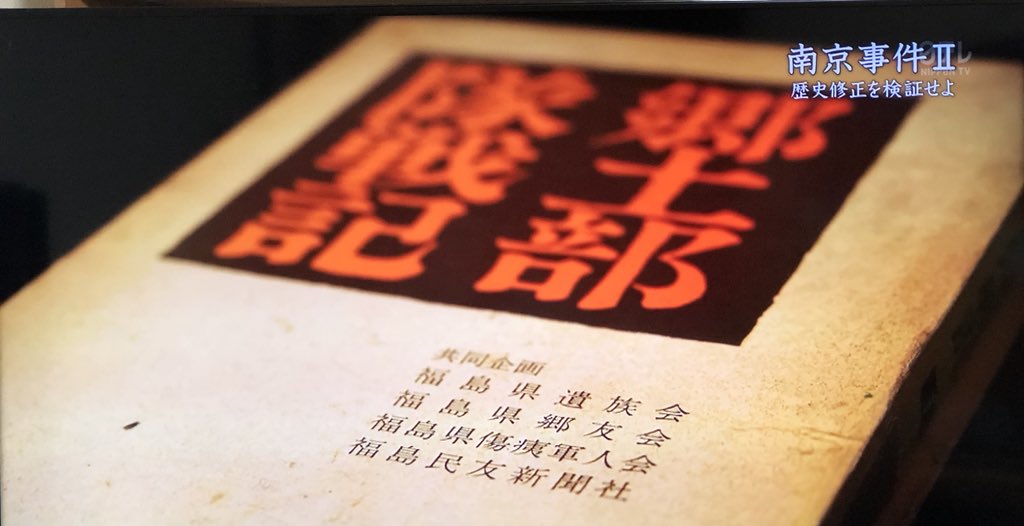 南京事件Ⅱ
歴史修正を検証せよ
日テレ
NIPPON TV
郷土部
隊戦記
共同企画
福島県遺族会
福島県郷友会
福島県傷痍軍人会
福島民友新聞社